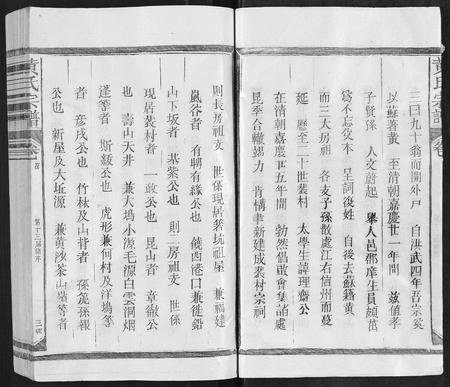 三曰九十翁而開外戶 自洪武四年吾宗奚
以蘇著黃 至清朝嘉慶廿一年間 茲值孝
子賢孫 人文蔚起 舉人邑郡庠生員頗萬
為不忘父本 呈詞復姓 自後去蘇籍黃
而三大房祖 各支子孫散處江右信州而蔓
延 歷至二十世裴村 太學生諱理齋公
在清朝嘉慶廿五年間 勃然倡敢會集諸處
昆季合轍竭力 肯構聿新建成裴村宗祠
則長房祖支 世係現居若坑祖屋 兼福建
嵐谷者 有聘有緣公也 饒西港口兼徙鉛
山下坂者 基紫公也 則二房祖支 世係
現居裴村者 一敢公也 崑山者 章徹公
也 壽山天井 兼大塢小源毛源白雲洞烟
蓬等者 斯毅公也 虎形兼何村及洋塢等
者 彥成公也 竹林及山背者 孫篪孫報
公也 新屋及大坵源 兼黃沙茶山嶺等者
黃氏宗譜
卷首
第十三屆續序
三
黃氏宗譜
卷